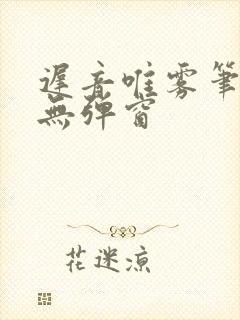 遲音唯雾筆
無彈窗
花迷凉